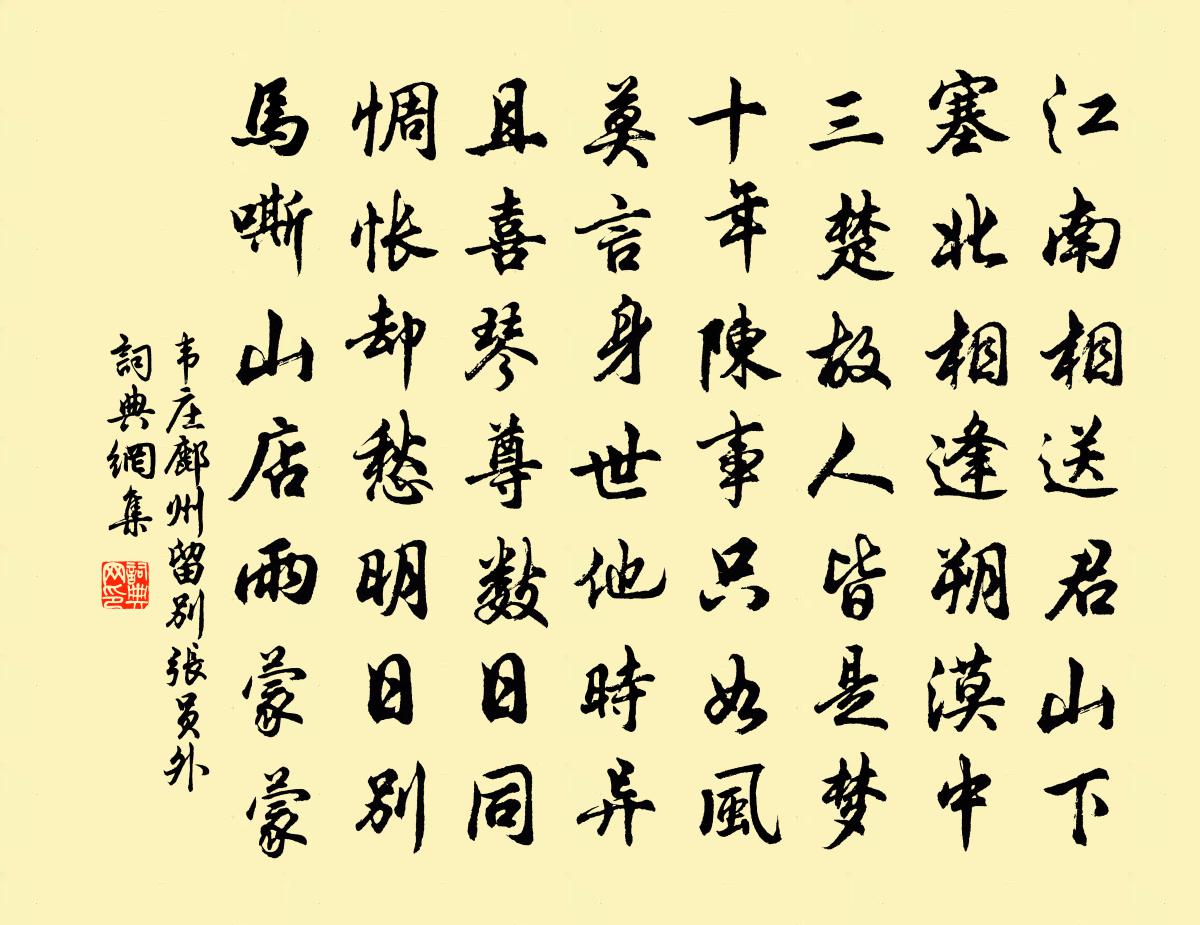 江南相送君山下
塞北相逢漠朔中
三楚故人皆是梦
十年陳事只如風
莫言身世他時异
且喜琴尊数日同
惆怅却愁明日别
馬嘶山店雨蒙蒙
韦庄鄜州留别張员外
詞典網集
詞典
网印